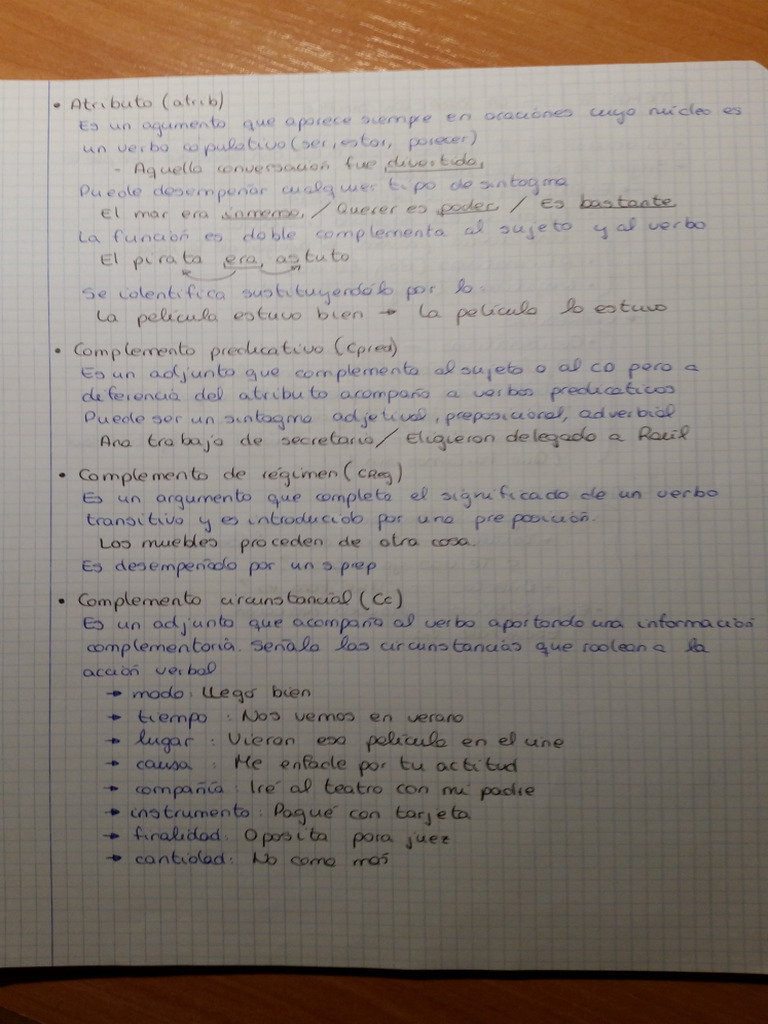 • Atributo (atrib)
Es un agumento que aparece siempre en oraciones cuyo núcleo es
un verbo copulativo (ser, estar, parecer)
- Aquella conversación fue divertida.
Puede desempeñar cualquier tipo de sintagma
El mar era inmenso. / Querer es poder. / Es bastante
La función es doble complementa al sujeto y al verbo
El pirata era astuto
Se identifica sustituyendólo por lo.
La película estuvo bien → La película lo estuvo
• Complemento predicativo (Cpred)
Es un adjunto que complementa al sujeto o al CD pero a
deferencia del atributo acompaña a verbos predicaticos
Puede ser un sintagma adjetival, preposicional, adverbial
Ana trabaja de secretaria / Eligieron delegado a Raúl
• Complemento de régimen (CReg)
Es un argumento que completa el significado de un verbo
transitivo y es introducido por una preposición.
Los muebles proceden de otra cosa.
Es desempeñado por un s prep
• Complemento circunstancial (Cc)
Es un adjunto que acompaña al verbo aportando una información
complementaria. Señala las circunstancias que rodean a la
acción verbal
→ modo: Llegó bien
→ tiempo: Nos vemos en verano
→ lugar: Vieron esa película en el cine
→ causa: Me enfade por tu actitud
→ compañía: Iré al teatro con mi padre
→ instrumento: Pagué con tarjeta
→ finalidad: Oposita para juez
→ cantidad: No coma más